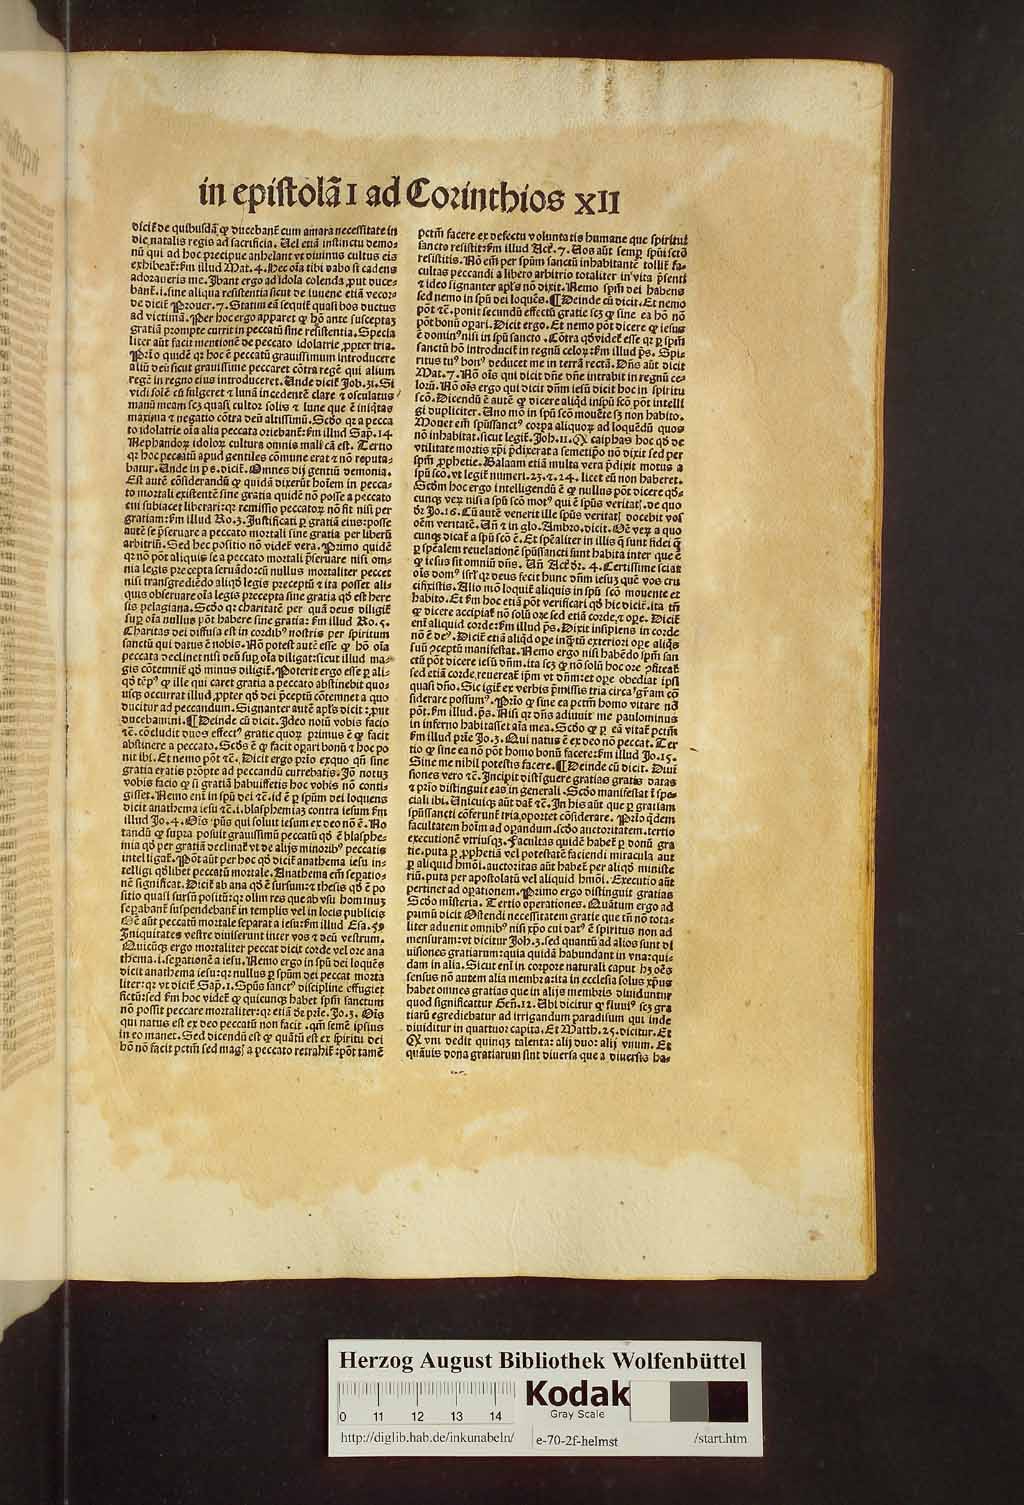 in epistolã I ad Corinthios XII
dicit̃ de quibusdã ꝙ ducebant̃ cum amara necessitate in
die natalis regis ad sacrificia. Uel etiã instinctu demo-
nũ qui ad hoc precipue anhelant vt diuinus cultus eis
exhibeat̃: ẜm illud Mat. 4. Hec oĩa tibi dabo si cadens
adoraueris me. Ibant ergo ad idola colenda ꝓut duce-
bant̃. i. sine aliqua resistentia sicut de iuuene etiã vecor-
de dicit̃ Prouer. 7. Statim eã sequit̃ quasi bos ductus
ad victimã. Per hoc ergo apparet ꝙ hõ ante susceptaz
gratiã prompte currit in peccatũ sine resistentia. Specia
liter aũt facit mentionẽ de peccato idolatrie ꝓpter tria.
Prĩo quidẽ qꝛ hoc ẽ peccatũ grauissimum introducere
aliũ deũ sicut grauissime peccaret cõtra regẽ qui alium
regẽ in regno eius introduceret. Unde dicit̃ Job. 31. Si
vidi solẽ cũ fulgeret ⁊ lunã incedentẽ clare ⁊ osculatus
manũ meam scz quasi cultor solis ⁊ lune que ẽ iniq̃tas
maxima ⁊ negatio cõtra deũ altissimũ. Scdo qꝛ a pecca
to idolatrie oĩa alia peccata oriebant̃: ẜm illud Sap̃. 14
Nephandoꝝ idoloꝝ cultura omnis mali cã est. Tertio
qꝛ hoc peccatũ apud gentiles cõmune erat ⁊ nõ reputa-
batur. Unde in p̃s. dicit̃. Omnes dij gentiũ demonia.
Est autẽ cõsiderandũ ꝙ quidã dixerũt hoĩem in pecca-
to mortali existentẽ sine gratia quidẽ nõ posse a peccato
cui subiacet liberari: qꝛ remissio peccatoꝝ nõ fit nisi per
gratiam: ẜm illud Ro. 3. Justificati ꝑ gratiã eius: posse
autẽ se p̃seruare a peccato mortali sine gratia per liberũ
arbitriũ. Sed hec positio nõ videt̃ vera. Primo quidẽ
qꝛ nõ põt aliquis se a peccato mortali p̃seruare nisi om-
nia legis precepta seruãdo: cũ nullus mortaliter peccet
nisi transgrediẽdo aliqđ legis preceptũ ⁊ ita posset ali-
quis obseruare oĩa legis precepta sine gratia qđ est here
sis pelagiana. Scdo qꝛ charitatẽ per quã deus diligit̃
suꝑ oĩa nullus põt habere sine gratia: ẜm illud Ro. 5.
Charitas dei diffusa est in cordibꝰ nostris per spiritum
sanctũ qui datus ẽ nobis. Nõ potest autẽ esse ꝙ hõ oĩa
peccata declinet nisi deũ suꝑ oĩa diligat: sicut illud ma-
gis cõtemnit̃ qđ minus diligit̃. Poterit ergo esse ꝑ ali-
qđ tẽpꝰ ꝙ ille qui caret gratia a peccato abstinebit quo-
usqꝫ occurrat illud ꝓpter qđ dei p̃ceptũ cõtemnet a quo
ducitur ad peccandum. Signanter autẽ apl̃s dicit: ꝓut
ducebamini. ¶ Deinde cũ dicit. Ideo notũ vobis facio
⁊c̃. cõcludit duos effectꝰ gratie quoꝝ primus ẽ ꝙ facit
abstinere a peccato. Scđs ẽ ꝙ facit oꝑari bonũ ⁊ hoc po
nit ibi. Et nemo põt ⁊c̃. Dicit ergo prĩo exquo qñ sine
gratia eratis prõpte ad peccandũ currebatis. Jõ notuz
vobis facio ꝙ si gratiã habuissetis hoc vobis nõ conti-
gisset. Nemo eni in spũ dei ⁊c̃. id ẽ ꝑ spũm dei loquens
dicit anathema iesu ⁊c̃. i. blasphemiaz contra iesum ẜm
illud Jo. 4. Oĩs spũs qui soluit iesum ex deo nõ ẽ. No
tandũ ꝙ supra posuit grauissimũ peccatũ qđ ẽ blasphe-
mia qđ per gratiã declinat̃ vt de alijs minoribꝰ peccatis
intelligat̃. Põt aũt per hoc qđ dicit̃ anathema iesu in-
telligi qđlibet peccatũ mortale. Anathema em̃ seꝑatio-
nẽ significat. Dicit̃ ab ana qđ ẽ sursum: ⁊ thesis qđ ẽ po
sitio quasi sursũ positũ: qꝛ olim res que ab vsu hominuz
seꝑabant̃ suspendebant̃ in templis vel in locis publicis
Oẽ aũt peccatũ mortale separat a iesu: ẜm illud Esa. 59
Iniquitates vestre diuiserunt inter vos ⁊ deũ vestrum.
Quicũqꝫ ergo mortaliter peccat dicit corde vel ore ana
thema. i. seꝑationẽ a iesu. Nemo ergo in spũ dei loquẽs
dicit anathema iesu: qꝛ nullus ꝑ spũm dei peccat morta
liter: qꝛ vt dicit̃ Sap̃. 1. Spũs sanctꝰ discipline effugiet
fictũ: sed ẜm hoc videt̃ ꝙ quicunqꝫ habet spm̃ sanctum
nõ possit peccare mortaliter: qꝛ etiã dr̃ prĩe. Jo. 3. Oĩs
qui natus est ex deo peccatũ non facit. qm̃ semẽ ipsius
in eo manet. Sed dicendũ est ꝙ quãtũ est ex spiritu dei
hõ nõ facit pctm̃ sed magꝭ a peccato retrahit̃: põt tamẽ
pctm̃ facere ex defectu voluntatis humane que spiritui
sancto resistit: ẜm illud Act̃. 7. Uos aũt semꝑ spũi sctõ
resistitis. Nõ em̃ per spũm sanctũ inhabitantẽ tollit̃ fa-
cultas peccandi a libero arbitrio totaliter in vita p̃senti
⁊ ideo signanter apl̃s nõ dixit. Nemo spm̃ dei habens
sed nemo in spũ dei loquẽs. ¶ Deinde cũ dicit. Et nemo
põt ⁊c̃. ponit secundũ effectũ gratie scz ꝙ sine ea hõ nõ
põt bonũ oꝑari. Dicit ergo. Et nemo põt dicere ꝙ iesus
ẽ dominꝰ nisi in spũ sancto. Cõtra qđ videt̃ esse qꝛ ꝑ spm̃
sanctũ hõ introducit̃ in regnũ celoꝝ: ẜm illud p̃s. Spi-
ritus tuꝰ bonꝰ deducet me in terrã rectã. Dñs aũt dicit
Mat. 7. Nõ oĩs qui dicit dñe dñe intrabit in regnũ ce-
lorũ. Nõ oĩs ergo qui dicit dñm iesũ dicit hoc in spiritu
scõ. Dicendũ ẽ autẽ ꝙ dicere aliqđ in spũ scõ põt intelli
gi dupliciter. Uno mõ in spũ scõ mouẽte sꝫ non habito.
Mouet em̃ spũssanctꝰ corpa aliquoꝝ ad loquẽdũ quos
nõ inhabitat. sicut legit̃. Joh. 11. ꝙ caiphas hoc qđ de
vtilitate mortis xp̃i p̃dixerat a semetip̃o nõ dixit sed per
spm̃ ꝓphetie. Balaam etiã multa vera p̃dixit motus a
spũ scõ. vt legit̃ numeri. 23. ⁊. 24. licet eũ non haberet.
Scdm hoc ergo intelligendũ ẽ ꝙ nullus põt dicere qđ-
cunqꝫ veꝝ nisi a spũ scõ motꝰ qui ẽ spũs veritatꝭ. de quo
dr̃ Jo. 16. Cũ autẽ venerit ille spũs veritatꝭ docebit vos
oẽm veritatẽ. Uñ ⁊ in glo. Ambro. dicit. Oẽ veꝝ a quo
cunqꝫ dicat̃ a spũ scõ ẽ. Et sp̃ealiter in illis q̃ sunt fidei q̃
ꝑ sp̃ealem reuelationẽ spũssancti sunt habita inter que ẽ
ꝙ iesus sit omniũ dñs. Uñ Act̃ dr̃. 4. Certissime sciat
oĩs domꝰ isr̃l qꝛ deus fecit hunc dñm iesuz quẽ vos cru
cifixistis. Alio mõ loquit̃ aliquis in spũ scõ mouente et
habito. Et ẜm hoc etiã põt verificari qđ hic dicit̃. ita tñ
ꝙ dicere accipiat̃ nõ solũ ore sed etiã corde ⁊ oꝑe. Dicit̃
eni aliquid corde: ẜm illud p̃s. Dixit insipiens in corde
nõ ẽ deꝰ. Dicit̃ etiã aliqđ ore inq̃tũ exteriori oꝑe aliq̃s
suũ ꝯceptũ manifestat. Nemo ergo nisi habẽdo spm̃ san
ctũ põt dicere iesũ dñm. ita scz ꝙ nõ solũ hoc ore ꝯfiteat̃
sed etiã corde reuereat̃ ip̃m vt dñm: et oꝑe obediat ipsi
quasi dño. Sic igit̃ ex verbis p̃missis tria circa gr̃am cõ
siderare possumꝰ. Prĩo ꝙ sine ea pctm̃ homo vitare nõ
põt. ẜm illud. p̃s. Nisi qꝛ dñs adiuuit me paulominus
in inferno habitasset aĩa mea. Scdo ꝙ ꝑ eã vitat̃ pctm̃
ẜm illud prĩe Jo. 3. Qui natus ẽ ex deo nõ peccat. Ter
tio ꝙ sine ea nõ põt homo bonũ facere: ẜm illud Jo. 15.
Sine me nihil potestis facere. ¶ Deinde cũ dicit. Diui
siones vero ⁊c̃. Incipit distĩguere gratias gratis datas
⁊ prĩo distinguit eas in generali. Scdo manifestat ĩ spe-
ciali ibi. Unicuiqꝫ aũt dat̃ ⁊c̃. In his aũt que ꝑ gratiam
spũssancti cõferunt̃ tria oportet cõsiderare. Prĩo q̃dem
facultatem hoĩm ad oꝑandum. scdo auctoritatem. tertio
executionẽ vtriusqꝫ. Facultas quidẽ habet̃ ꝑ donũ gra
tie. puta ꝑ ꝓphetiã vel potestatẽ faciendi miracula aut
ꝑ aliquid hmõi. auctoritas aũt habet̃ per aliqđ ministe
riũ. puta per apostolatũ vel aliquid hmõi. Executio aũt
pertinet ad oꝑationem. Primo ergo distinguit gratias
Scdo misteria. Tertio operationes. Quãtum ergo ad
primũ dicit Ostendi necessitatem gratie que tñ nõ tota-
liter aduenit omnibꝰ nisi xp̃o cui datꝰ ẽ spiritus non ad
mensuram: vt dicitur Joh. 3. sed quantũ ad alios sunt di
uisiones gratiarum: quia quidã habundant in vna: qui-
dam in alia. Sicut eni in corpore naturali caput hꝫ oẽs
sensus nõ autem alia membra: ita in ecclesia solus xp̃us
habet omnes gratias que in alijs membris diuiduntur
quod significatur Geñ. 12. Ubi dicitur ꝙ fluuiꝰ scz gra
tiarũ egrediebatur ad irrigandum paradisum qui inde
diuiditur in quattuor capita. Et Matth. 25. dicitur. Et
ꝙ vni dedit quinqꝫ talenta: alij duo: alij vnum. Et
quãuis dona gratiarum sint diuersa que a diuersis ha-
Herzog August Bibliothek Wolfenbüttel
0 11 12 13 14
Kodak
Gray Scale
http://diglib.hab.de/inkunabeln/ e-70-2f-helmst /start.htm